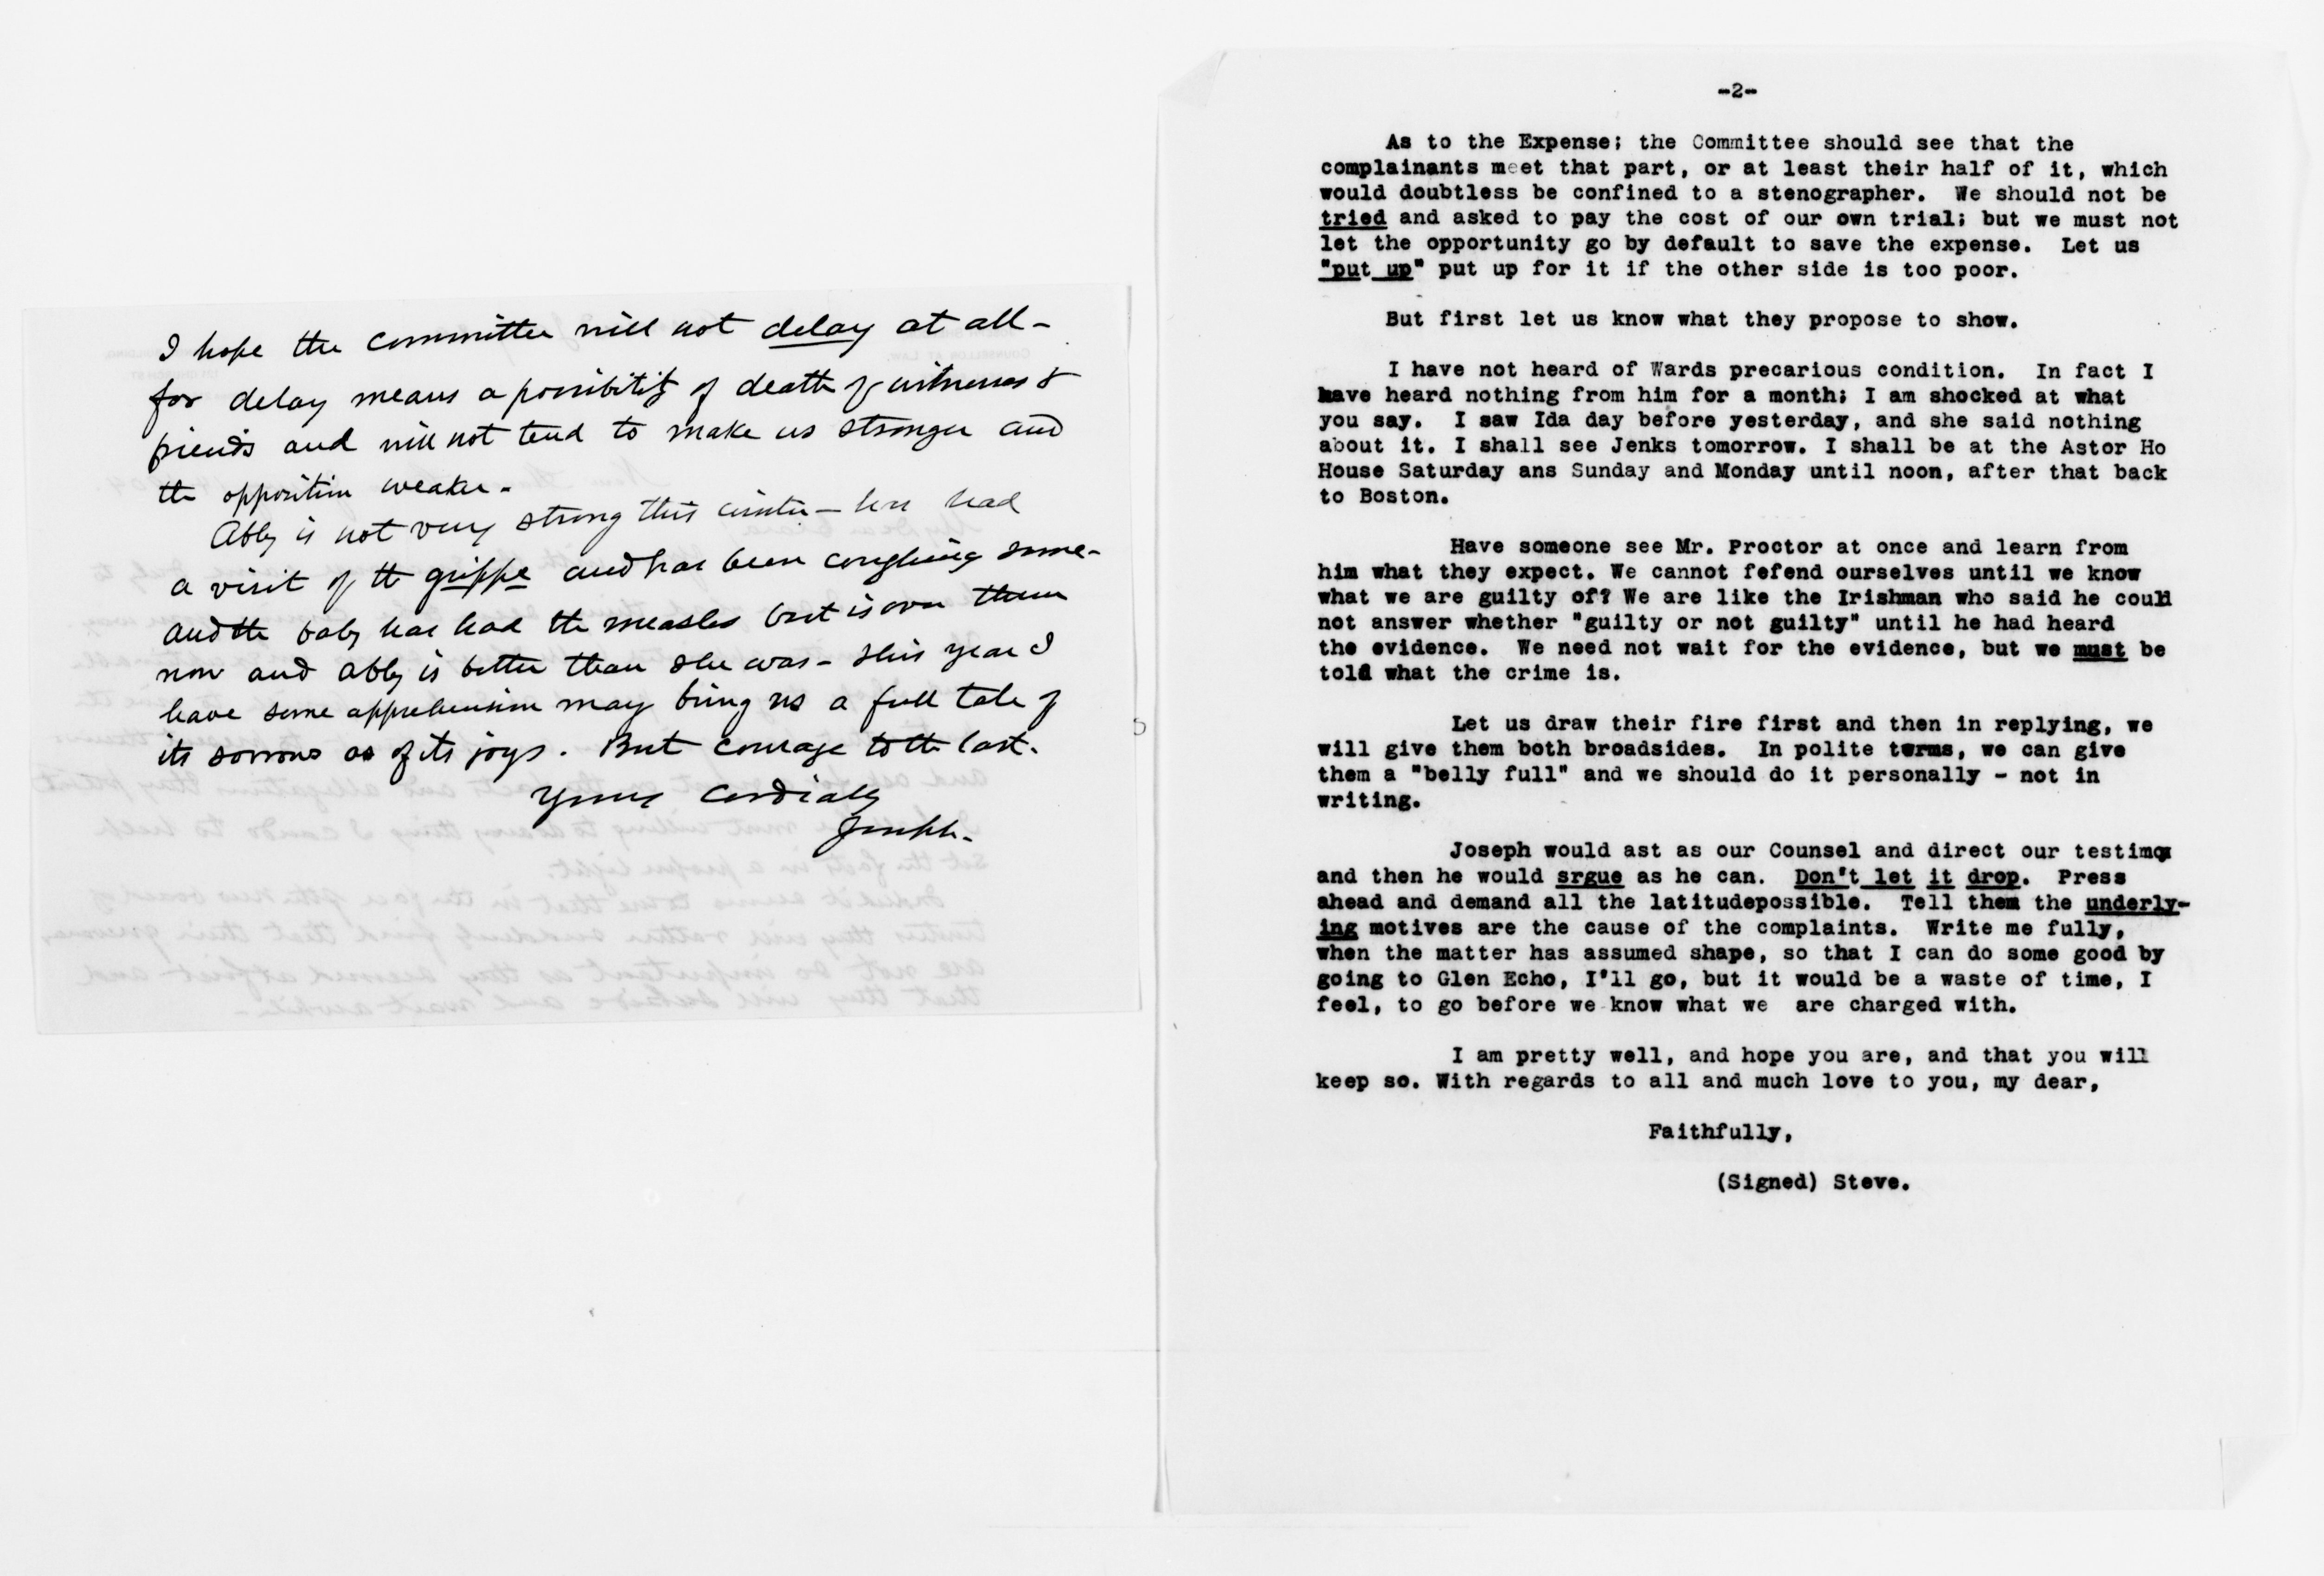 I hope the committee will not delay at all -
for delay means a possibility of death of witnesses &
friends and will not tend to make us stronger and
the opposition weaker.
Abby is not very strong this winter - has had
a visit of the grippe and has been coughing some-
and the baby has had the measles but is over them
now and Abby is better than she was - This year I
have some apprehension may bring us a full tale of
its sorrows as of its joys. But courage to the last.
Yours cordially
Joseph.
-2-
As to the Expense; the Committee should see that the
complainants meet that part, or at least their half of it, which
would doubtless be confined to a stenographer. We should not be
tried and asked to pay the cost of our own trial; but we must not
let the opportunity go by default to save the expense. Let us
"put up" put up for it if the other side is too poor.
But first let us know what they propose to show.
I have not heard of Wards precarious condition. In fact I
have heard nothing from him for a month; I am shocked at what
you say. I saw Ida day before yesterday, and she said nothing
about it. I shall see Jenks tomorrow. I shall be at the Astor Ho
House Saturday ans Sunday and Monday until noon, after that back
to Boston.
Have someone see Mr. Proctor at once and learn from
him what they expect. We cannot fefend ourselves until we know
what we are guilty of? We are like the Irishman who said he could
not answer whether "guilty or not guilty" until he had heard
the evidence. We need not wait for the evidence, but we must be
told what the crime is.
Let us draw their fire first and then in replying, we
will give them both broadsides. In polite terms, we can give
them a "belly full" and we should do it personally - not in
writing.
Joseph would ast as our Counsel and direct our testimo
and then he would srgue as he can. Don't let it drop. Press
ahead and demand all the latitudepossible. Tell them the underly-
ing motives are the cause of the complaints. Write me fully,
when the matter has assumed shape, so that I can do some good by
going to Glen Echo, I'll go, but it would be a waste of time, I
feel, to go before we know what we are charged with.
I am pretty well, and hope you are, and that you will
keep so. With regards to all and much love to you, my dear,
Faithfully,
(Signed) Steve.